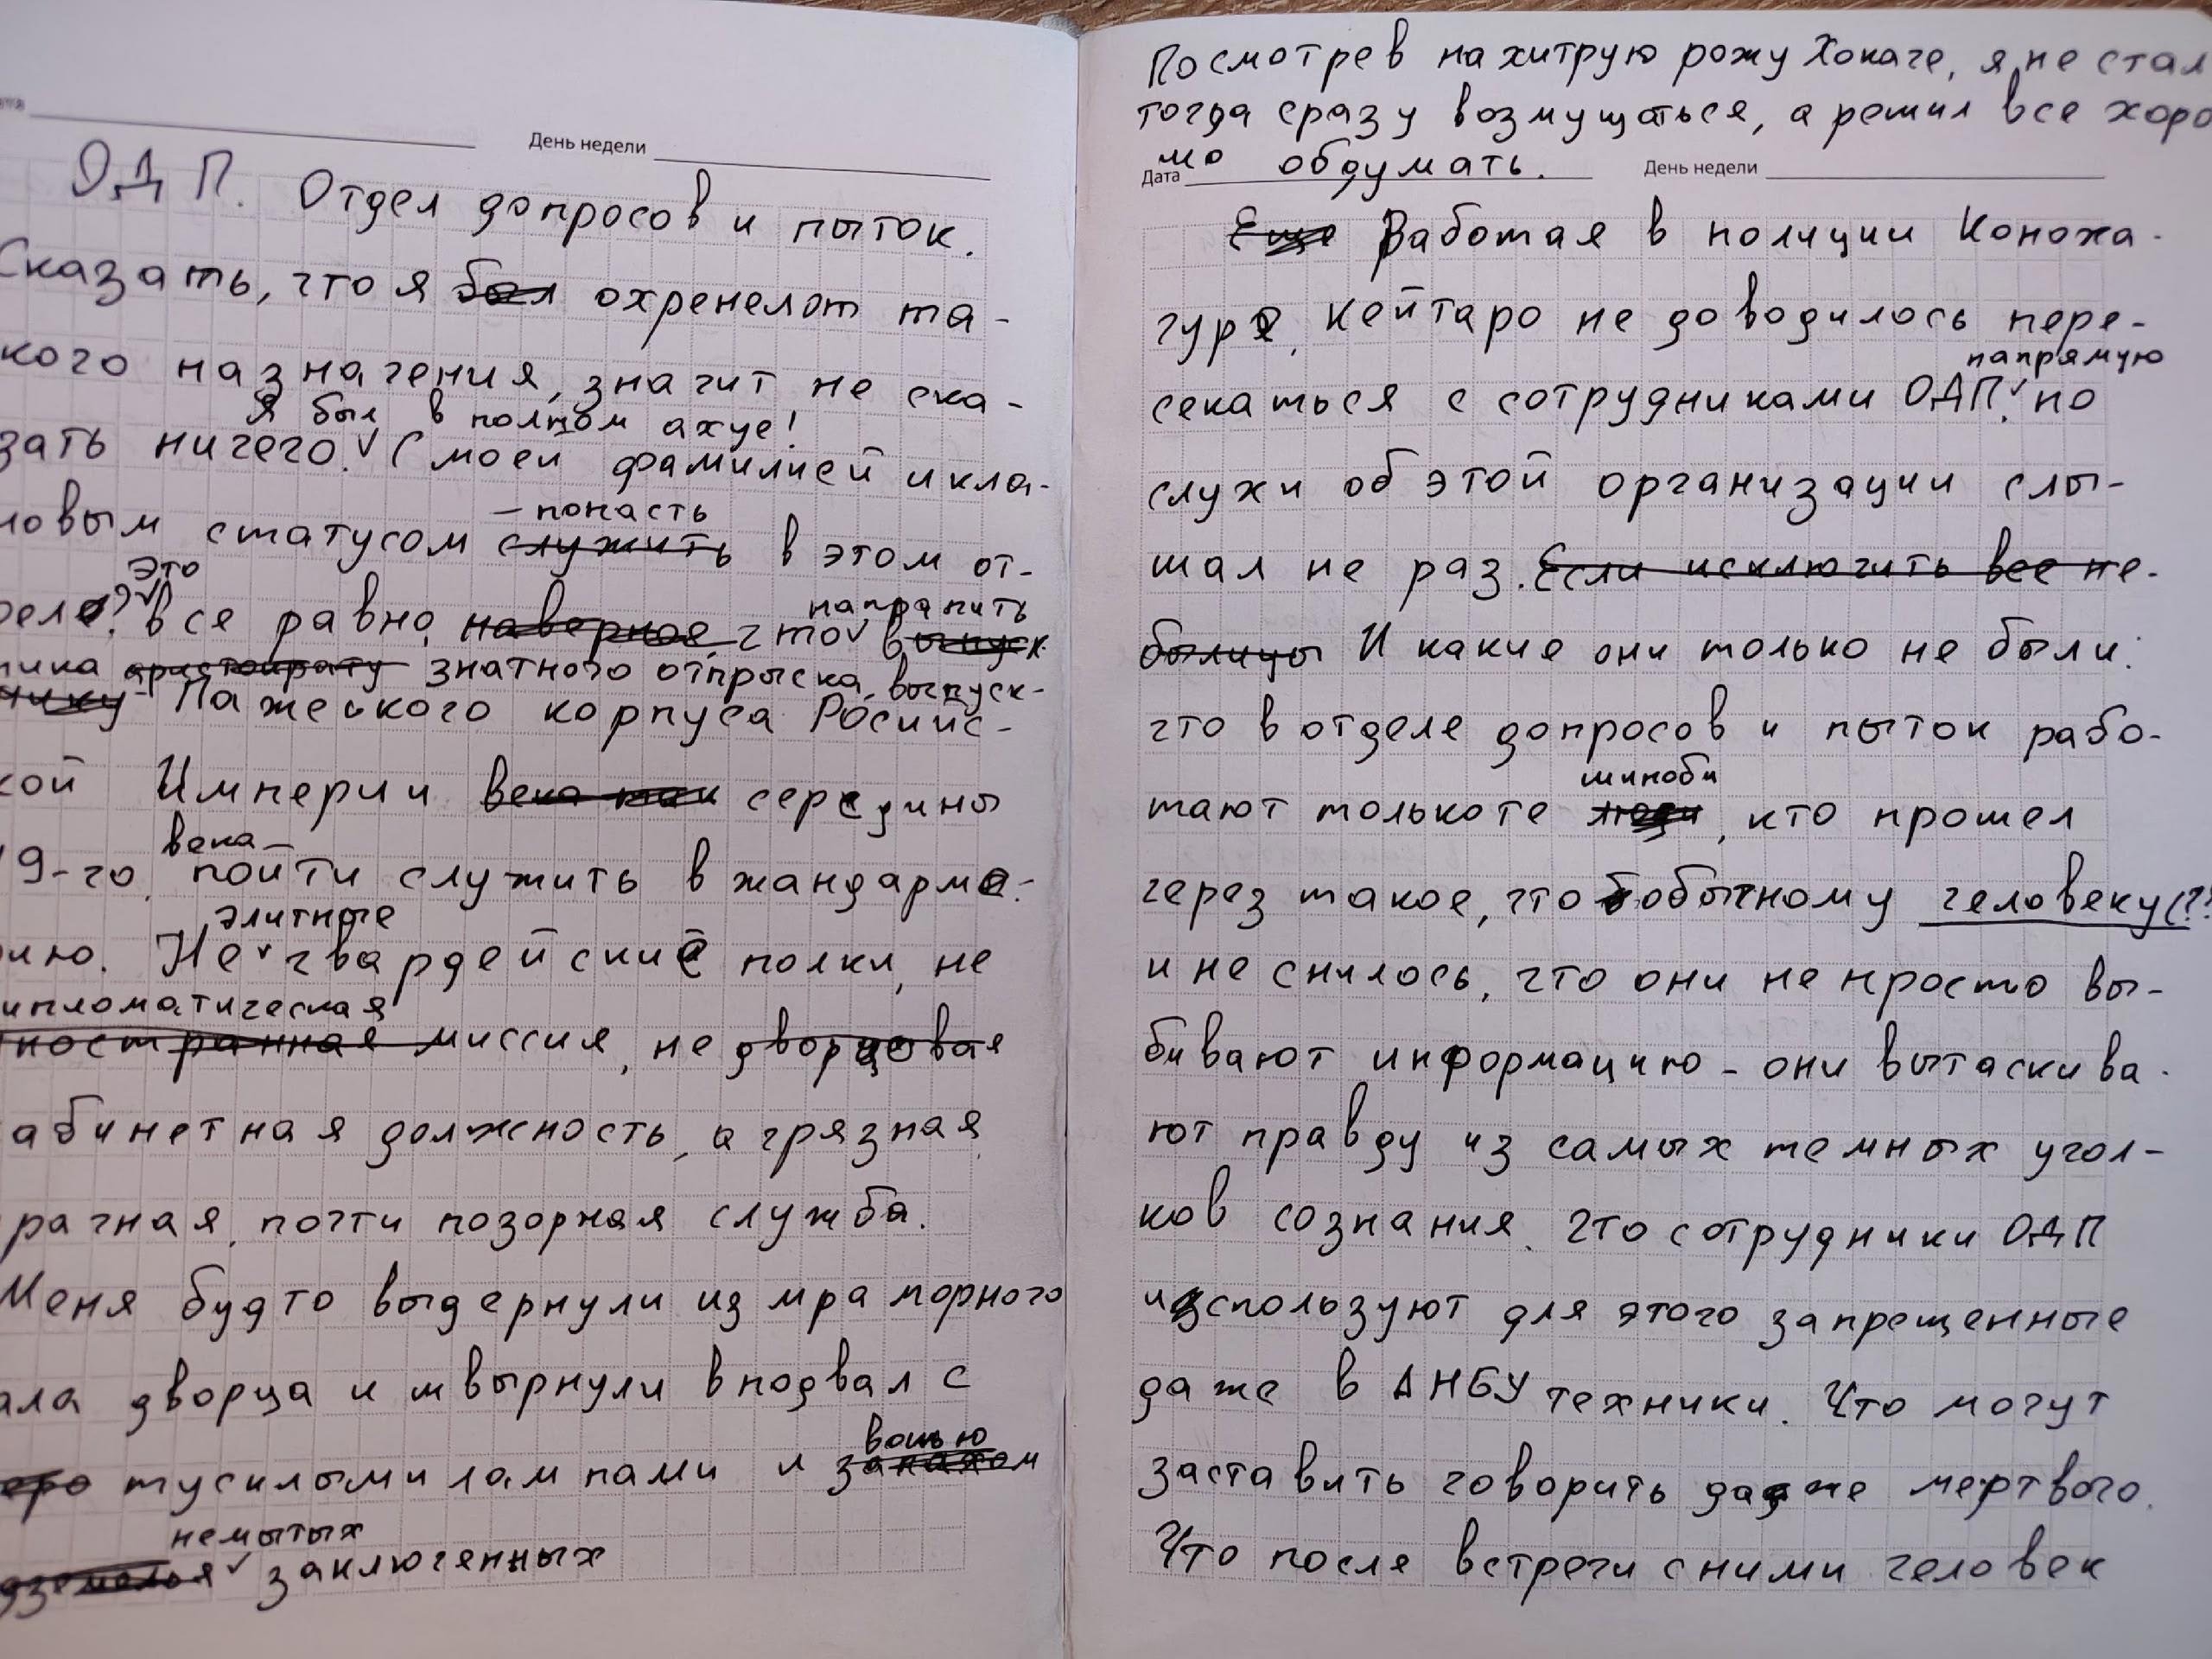 День недели
ОДП. Отдел допросов и пыток.
Сказать, что я был охренел от та-
кого назначения, значит не ска-
Я был в полном ахуе!
зать ничего. С моей фамилией и кла-
новым статусом служить в этом от-
– попасть
деле? все равно, наверное, что выпуск
Это
направить
ника аристократу знатного отпрыска, выпуск-
нику Пажеского корпуса Росийс-
кой Империи века так середины
века –
19-го, пойти служить в жандарме-
элитные
рию. Не гвардейские полки, не
дипломатическая
иностранная миссия, не дворцовая
кабинетная должность, а грязная,
мрачная, почти позорная служба.
Меня будто выдернули из мраморного
зала дворца и швырнули в подвал с
тусклыми лампами и запахом
вонью
немытых
подземелья заключенных
Посмотрев на хитрую рожу Хокаге, я не стал
тогда сразу возмущаться, а решил все хоро
шо обдумать.
Дата День недели
Еще Работая в полиции Коноха-
гуре, Кейтаро не доводилось пере-
напрямую
секаться с сотрудниками ОДП, но
слухи об этой организации слы-
шал не раз. Если исключить все не-
былицы И какие они только не были:
что в отделе допросов и пыток рабо-
шиноби
тают только те люди, кто прошел
через такое, что обычному человеку(??
и не снилось, что они не просто вы-
бивают информацию – они вытаскива-
ют правду из самых темных угол-
ков сознания. Что сотрудники ОДП
используют для этого запрещенные
даже в АНБУ техники. Что могут
заставить говорить даже мертвого.
Что после встречи с ними человек